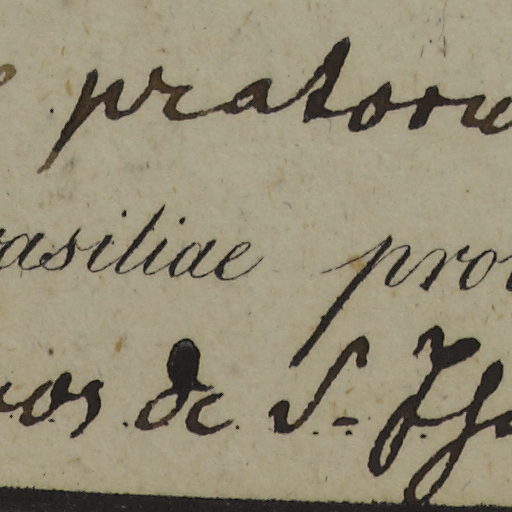 pratoru
rasiliae pro
os de S. Th